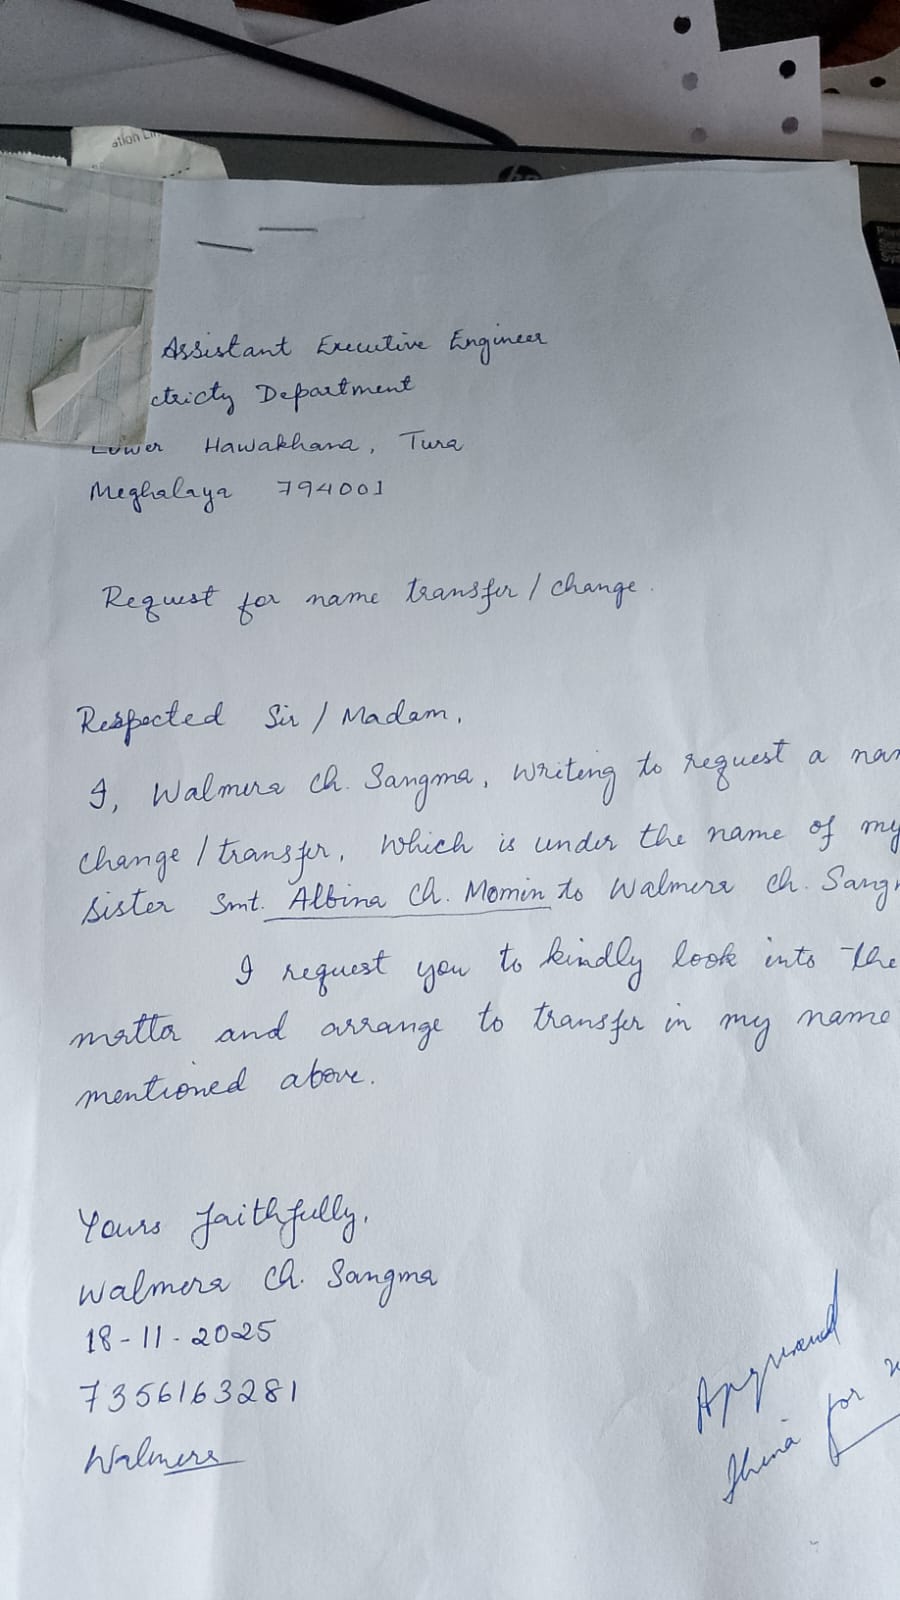 ation Lin
hp
Assistant Executive Engineer
ctricty Department
Lower Hawakhana, Tura
Meghalaya 794001
Request for name transfer / change.
Respected Sir / Madam,
I, Walmera Ch. Sangma, writing to request a nam
change / transfer, which is under the name of my
sister Smt. Albina Ch. Momin to Walmera Ch. Sangm
I request you to kindly look into the
matter and arrange to transfer in my name
mentioned above.
Yours faithfully,
Walmera Ch. Sangma
18-11-2025
7356163281
Walmera
for